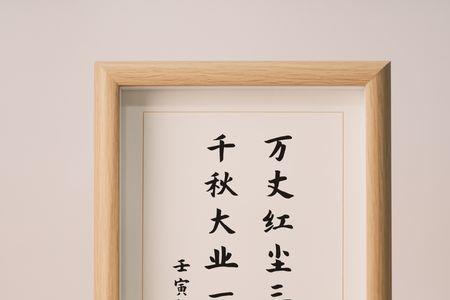 万丈红尘三
千秋大业一
壬寅